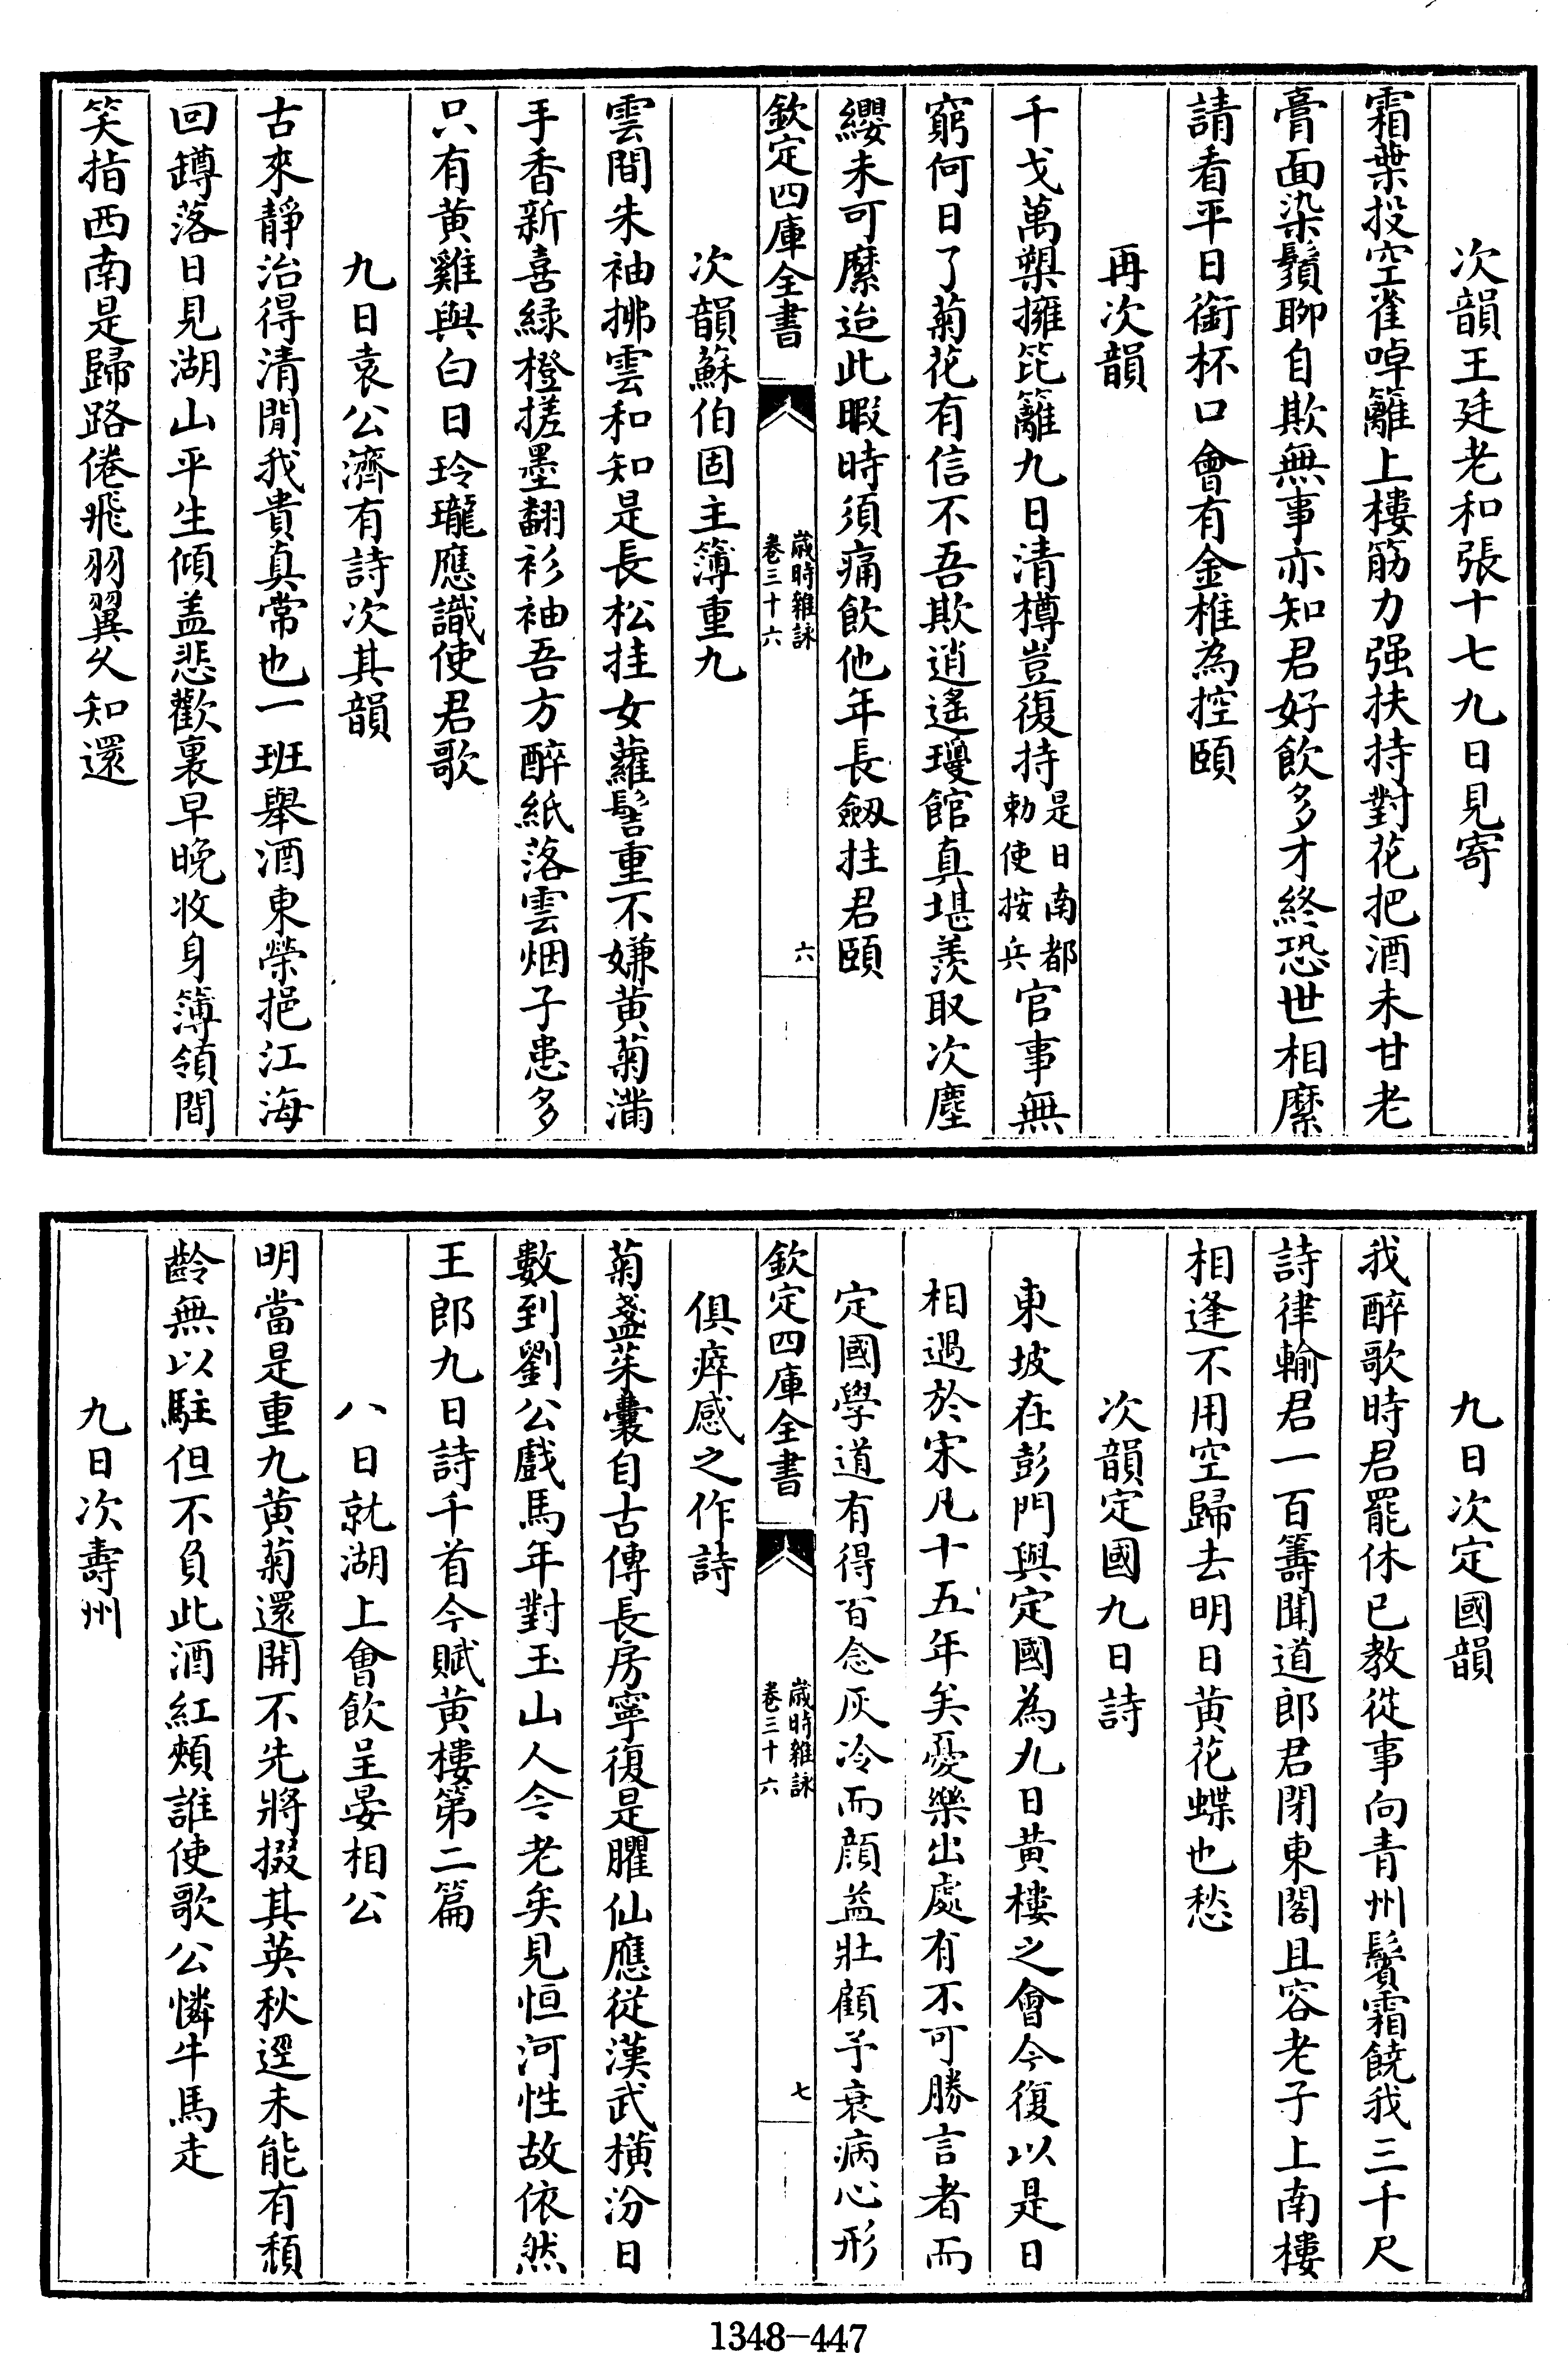 次韻王廷老和張十七九日見寄
霜葉投空雀啅籬上樓筋力强扶持對花把酒未甘老
膏面染鬚聊自欺無事亦知君好飲多才終恐世相縻
請看平日銜杯口會有金椎為控頤
再次韻
千戈萬槊擁笓籬九日清樽豈復持是日南都勅使按兵官事無
窮何日了菊花有信不吾欺逍遙瓊館真堪羨取次塵
纓未可縻迨此暇時須痛飲他年長劔拄君頤
欽定四庫全書
歲時雜詠
卷三十六
六
次韻蘇伯固主簿重九
雲間朱袖拂雲和知是長松挂女蘿髻重不嫌黄菊滿
手香新喜緑橙搓墨翻衫袖吾方醉紙落雲烟子患多
只有黄雞與白日玲瓏應識使君歌
九日袁公濟有詩次其韻
古來靜治得清閒我貴真常也一班舉酒東榮挹江海
回鐏落日見湖山平生傾盖悲歡裏早晚收身簿領間
笑指西南是歸路倦飛羽翼久知還
九日次定國韻
我醉歌時君罷休已教從事向青州鬢霜饒我三千尺
詩律輸君一百籌聞道郎君閉東閣且容老子上南樓
相逢不用空歸去明日黄花蝶也愁
次韻定國九日詩
東坡在彭門與定國為九日黄樓之會今復以是日
相遇於宋凡十五年矣憂樂出處有不可勝言者而
定國學道有得百念灰冷而顔益壯顧予衰病心形
欽定四庫全書
歲時雜詠
卷三十六
七
俱瘁感之作詩
菊盞茱囊自古傳長房寧復是臞仙應從漢武横汾日
數到劉公戲馬年對玉山人今老矣見恒河性故依然
王郎九日詩千首今賦黄樓第二篇
八日就湖上會飲呈晏相公
明當是重九黄菊還開不先將掇其英秋逕未能有頽
齡無以駐但不負此酒紅頰誰使歌公憐牛馬走
九日次壽州
1348-447